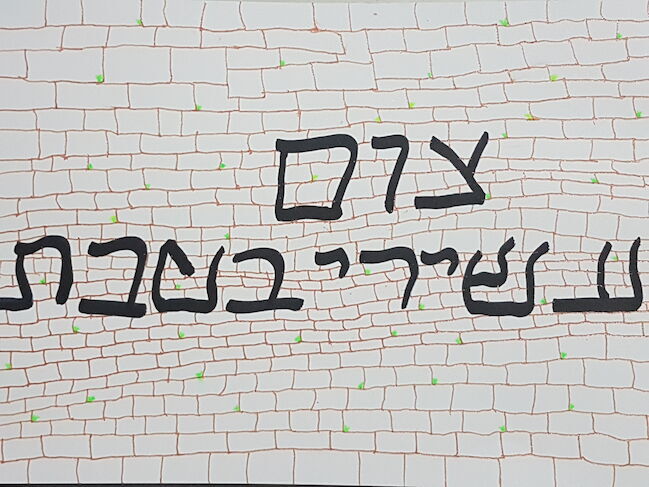 צום
עשירי בטבת